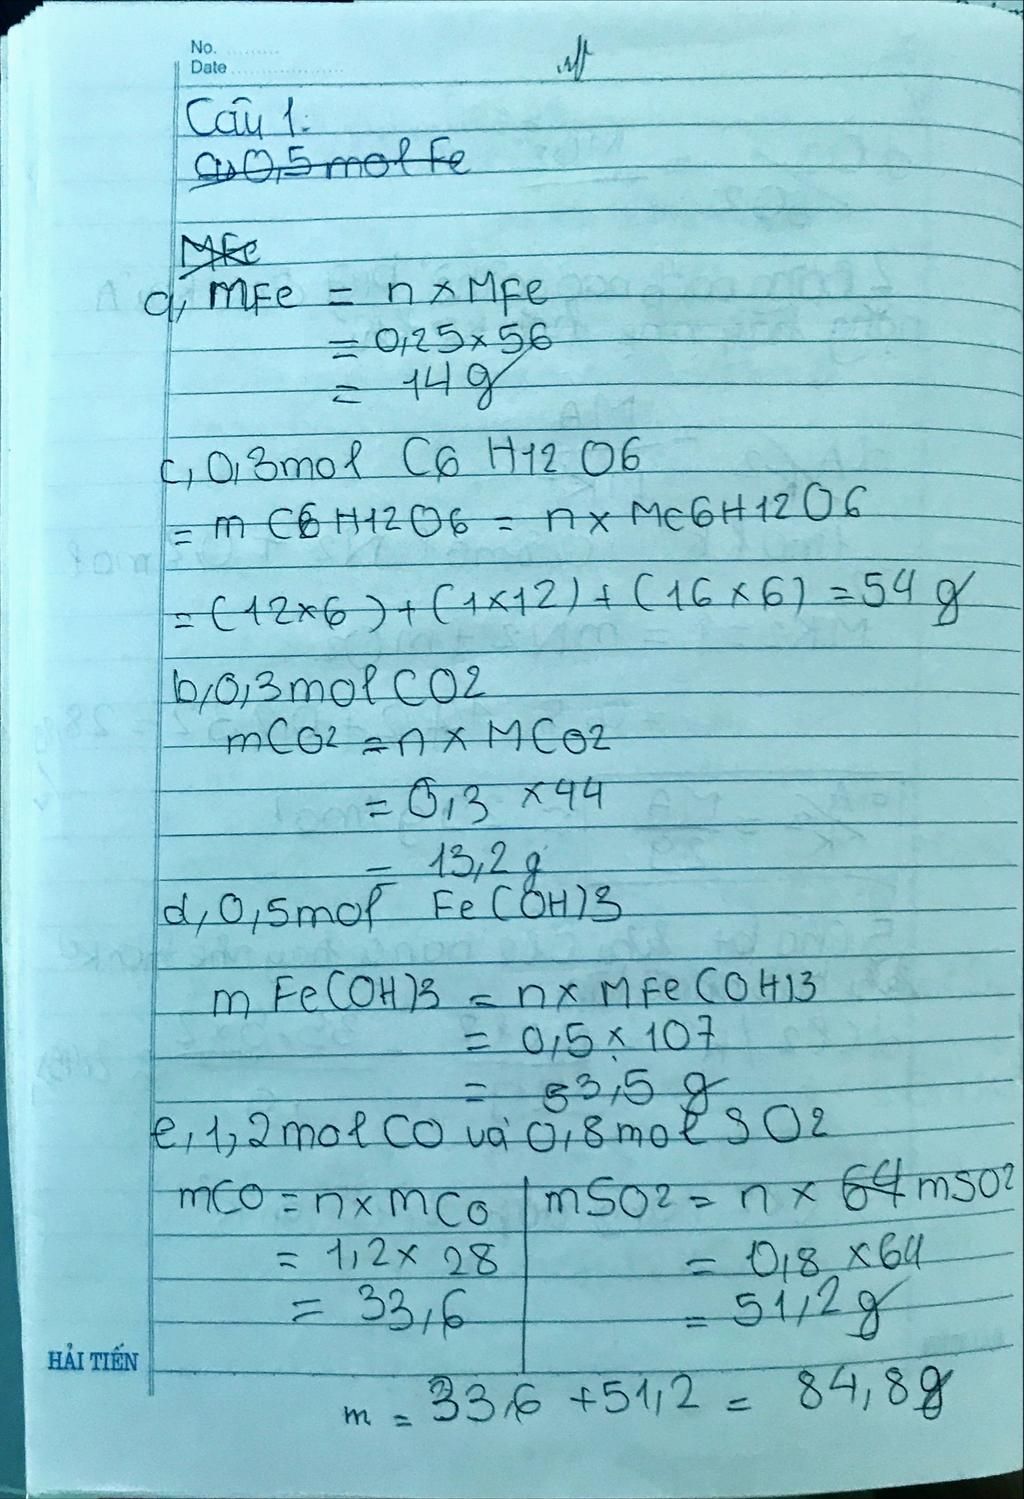 No. ..........
Date ....................
Câu 1:
a, 0,5 mol Fe
MFe
a, mFe = n x MFe
= 0,25 x 56
= 14 g
c, 0,3 mol C6 H12 O6
= m C6H12O6 = n x MC6H12O6
= (12x6) + (1x12) + (16x6) = 54 g
b, 0,3 mol CO2
mCO2 = n x MCO2
= 0,3 x 44
= 13,2 g
d, 0,5 mol Fe(OH)3
m Fe(OH)3 = n x MFe(OH)3
= 0,5 x 107
= 53,5 g
e, 1,2 mol CO và 0,8 mol SO2
mCO = n x mCO
= 1,2 x 28
= 33,6
mSO2 = n x 64 mSO2
= 0,8 x 64
= 51,2 g
HẢI TIẾN
m = 33,6 + 51,2 = 84,8g